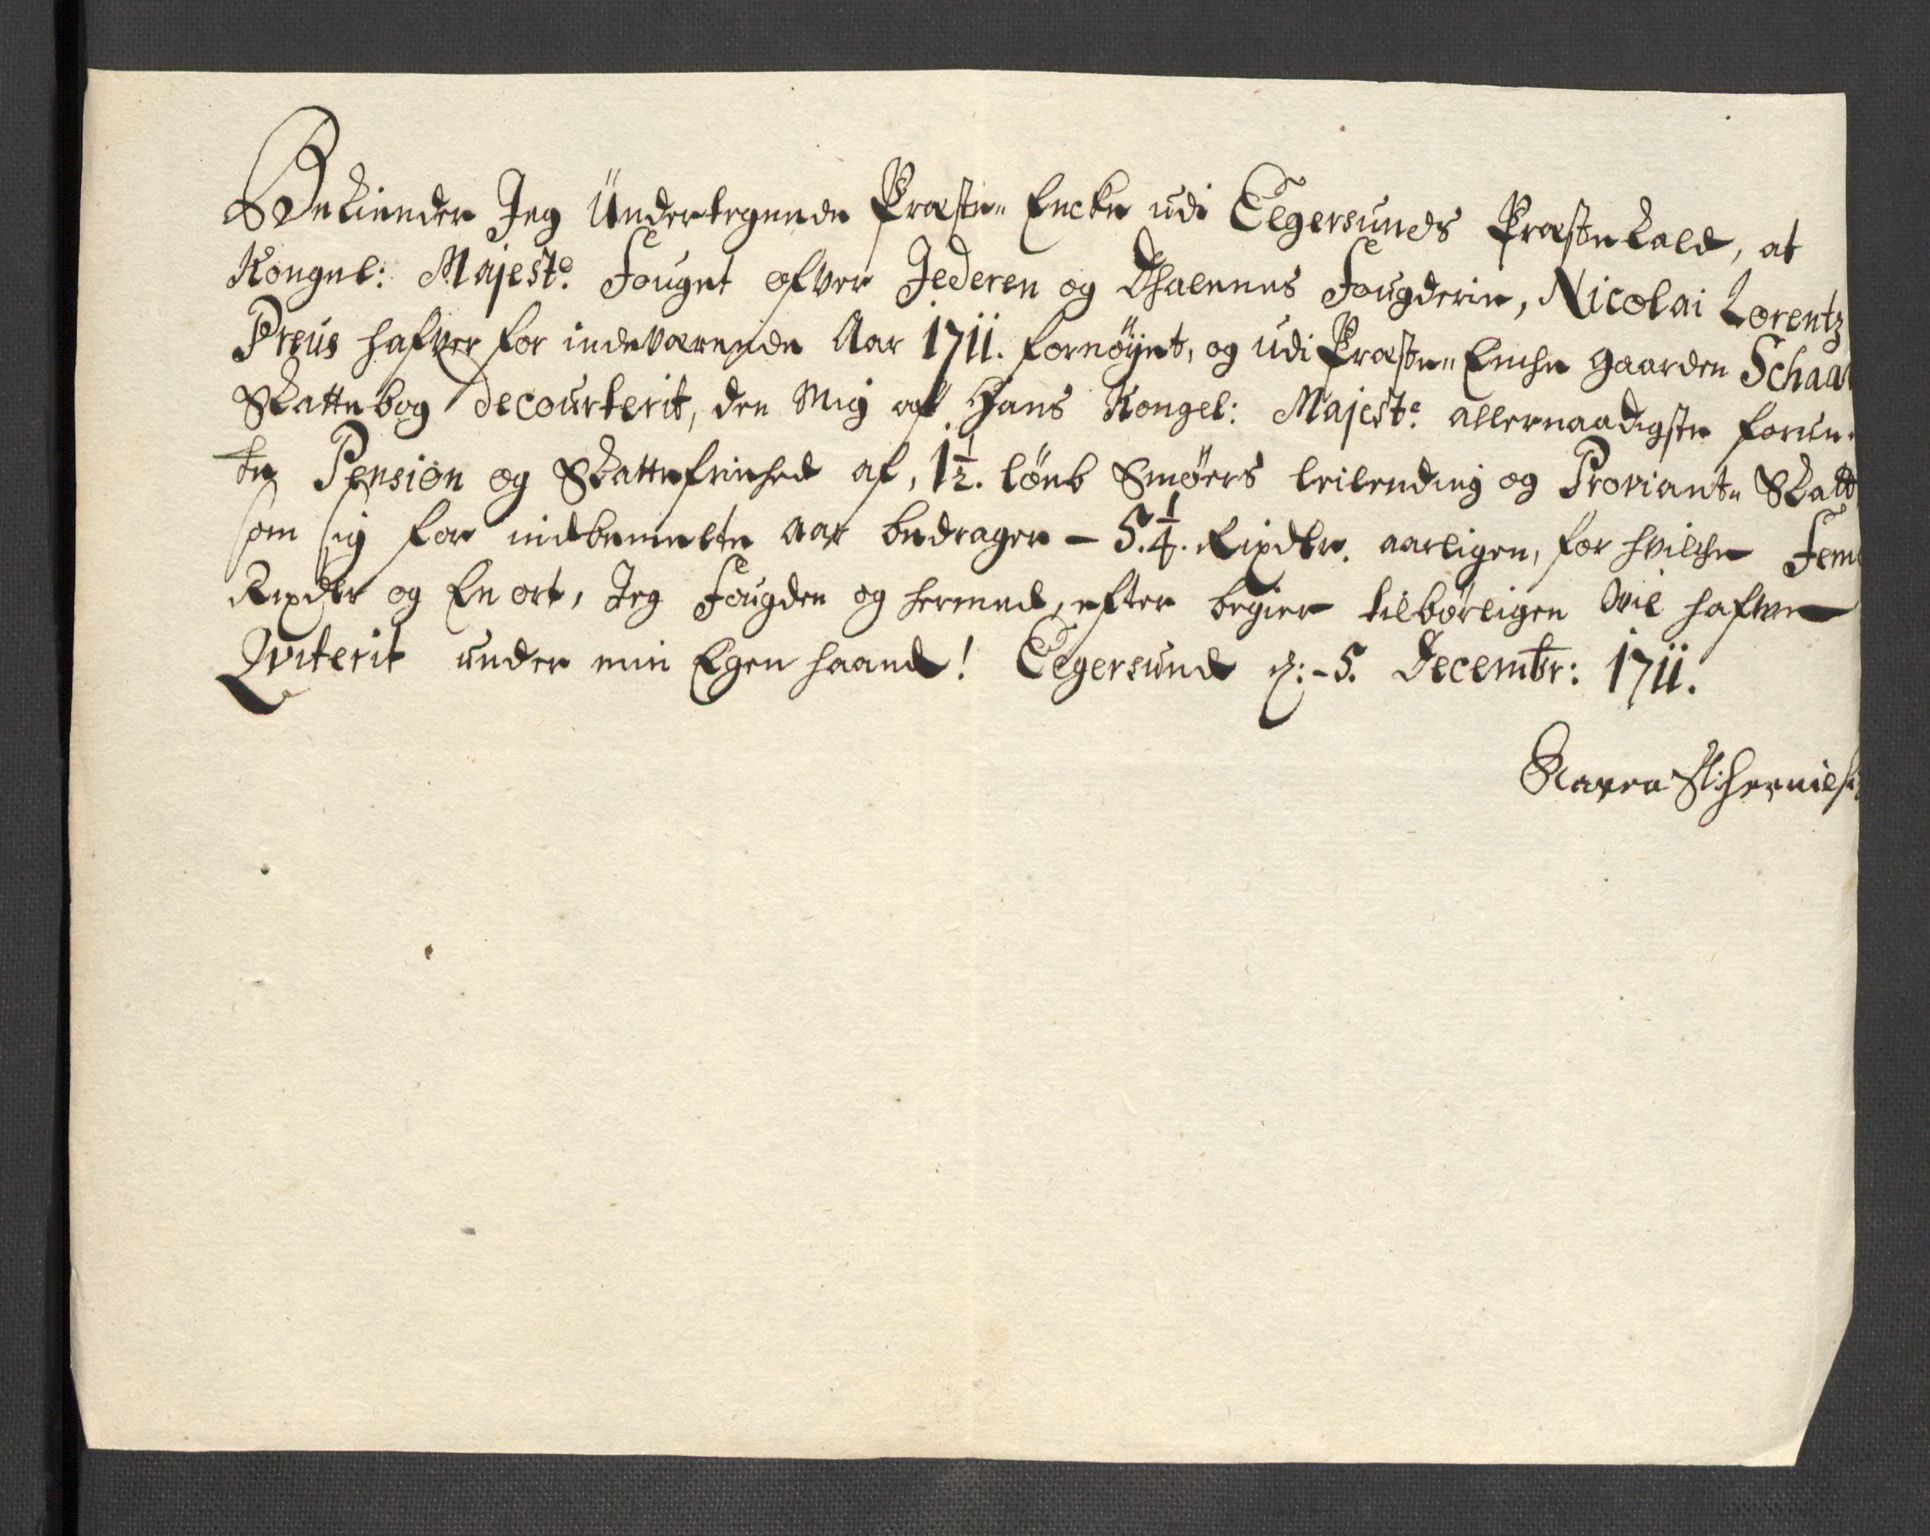 Bekiender Jeg Undertegnede Præste= Encke udi Eegersunds Præstekald, at
Kongel: Majest: Fouget ofver Jederen og Dhalenes Fougderie, Nicolai Lorentz
Preus hafver for indeværende Aar 1711. fornøyet, og udi Præste= Enche gaarden Schaa
Skattebog decourterit, den Mig af Hans Kongel: Majest: allernaadigste forun=
te Pension og Skattefriehed af, 1½. løub Smøers leilending og Proviant= Skatt
som sig for indbemelte aar bedrager – 5.¼. Rixdlr. aarligen, for hvilche Fem
Rixdlr og En ort, Jeg Fougden og hermed, efter begier tilbørligen Vil hafve
Qviterit under min Egen haand! Eegersund d: -5. Decembr: 1711.
Karen Sl: